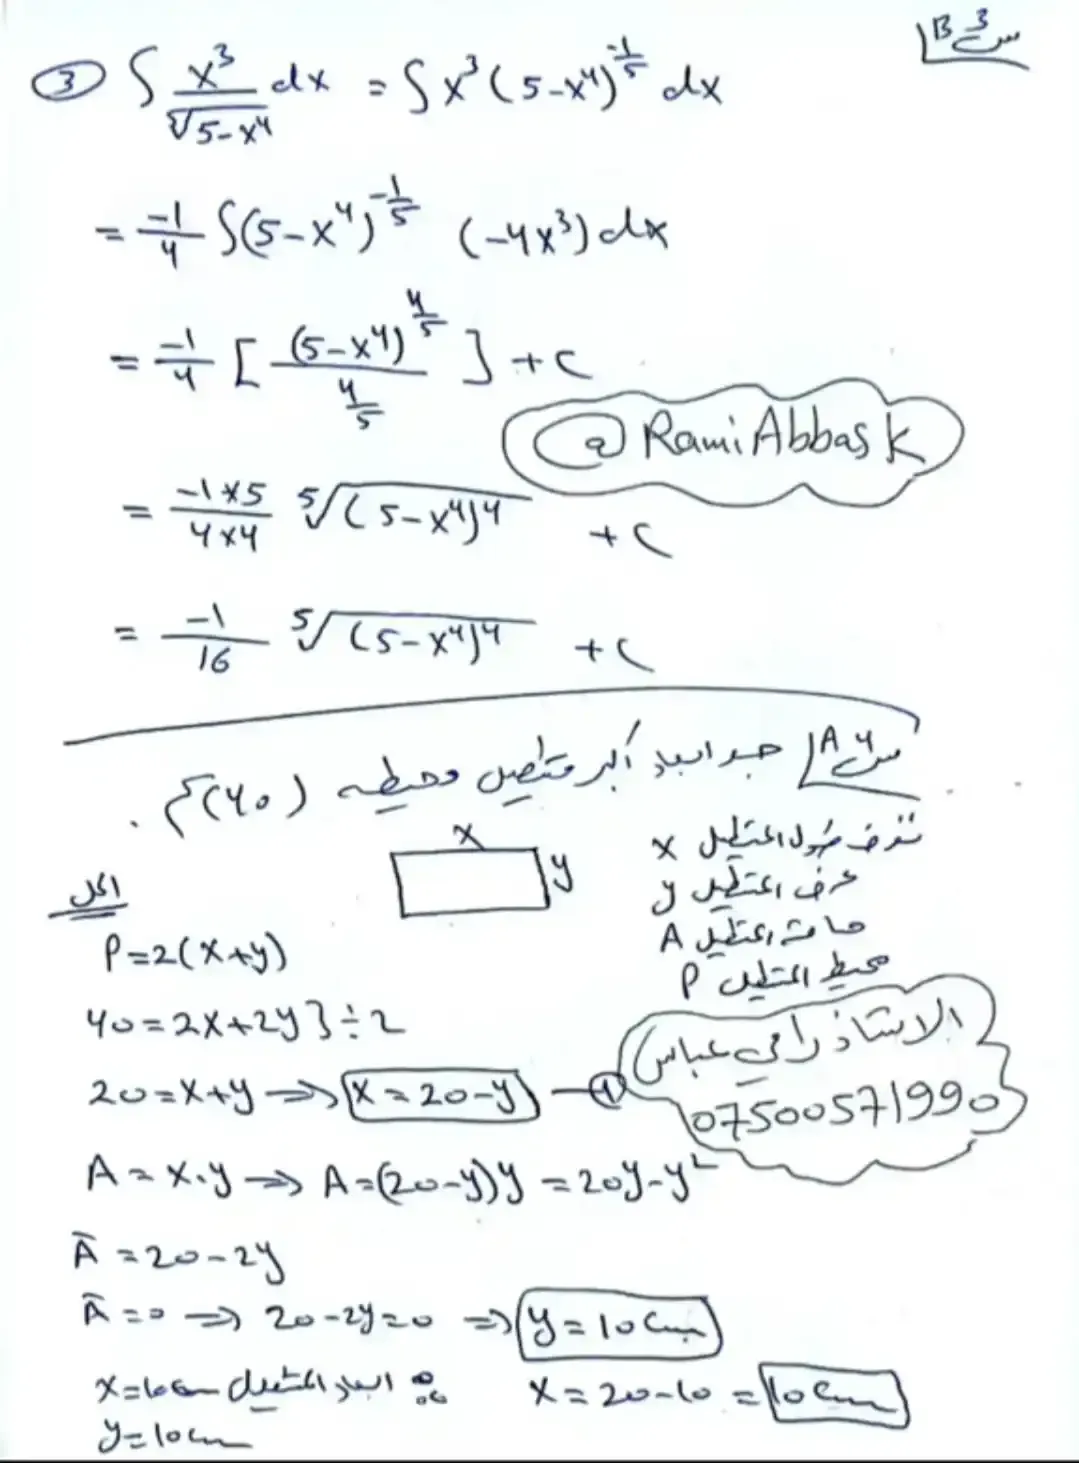 س3 B
③ ∫ x³/⁵√5-x⁴ dx = ∫ x³(5-x⁴)^(-1/5) dx
= -1/4 ∫(5-x⁴)^(-1/5) (-4x³)dx
= -1/4 [ (5-x⁴)^(4/5) / (4/5) ] + c
@RamiAbbask
= -1×5/4×4 ⁵√(5-x⁴)⁴ + c
= -1/16 ⁵√(5-x⁴)⁴ + c
س4 A جد ابعاد أكبر مستطيل محيطه (40)
x
y
نفرض طول المستطيل x
عرض المستطيل y
مساحة المستطيل A
محيط المستطيل P
الحل
P=2(x+y)
40=2x+2y } ÷ 2
20=x+y ⇒ x=20-y —①
الاستاذ رامي عباس
07500571990
A=x.y ⇒ A=(20-y)y=20y-y²
Ā=20-2y
Ā=0 ⇒ 20-2y=0 ⇒ y=10cm
x=20-10=10cm
∴ ابعاد المستطيل x=10cm
y=10cm